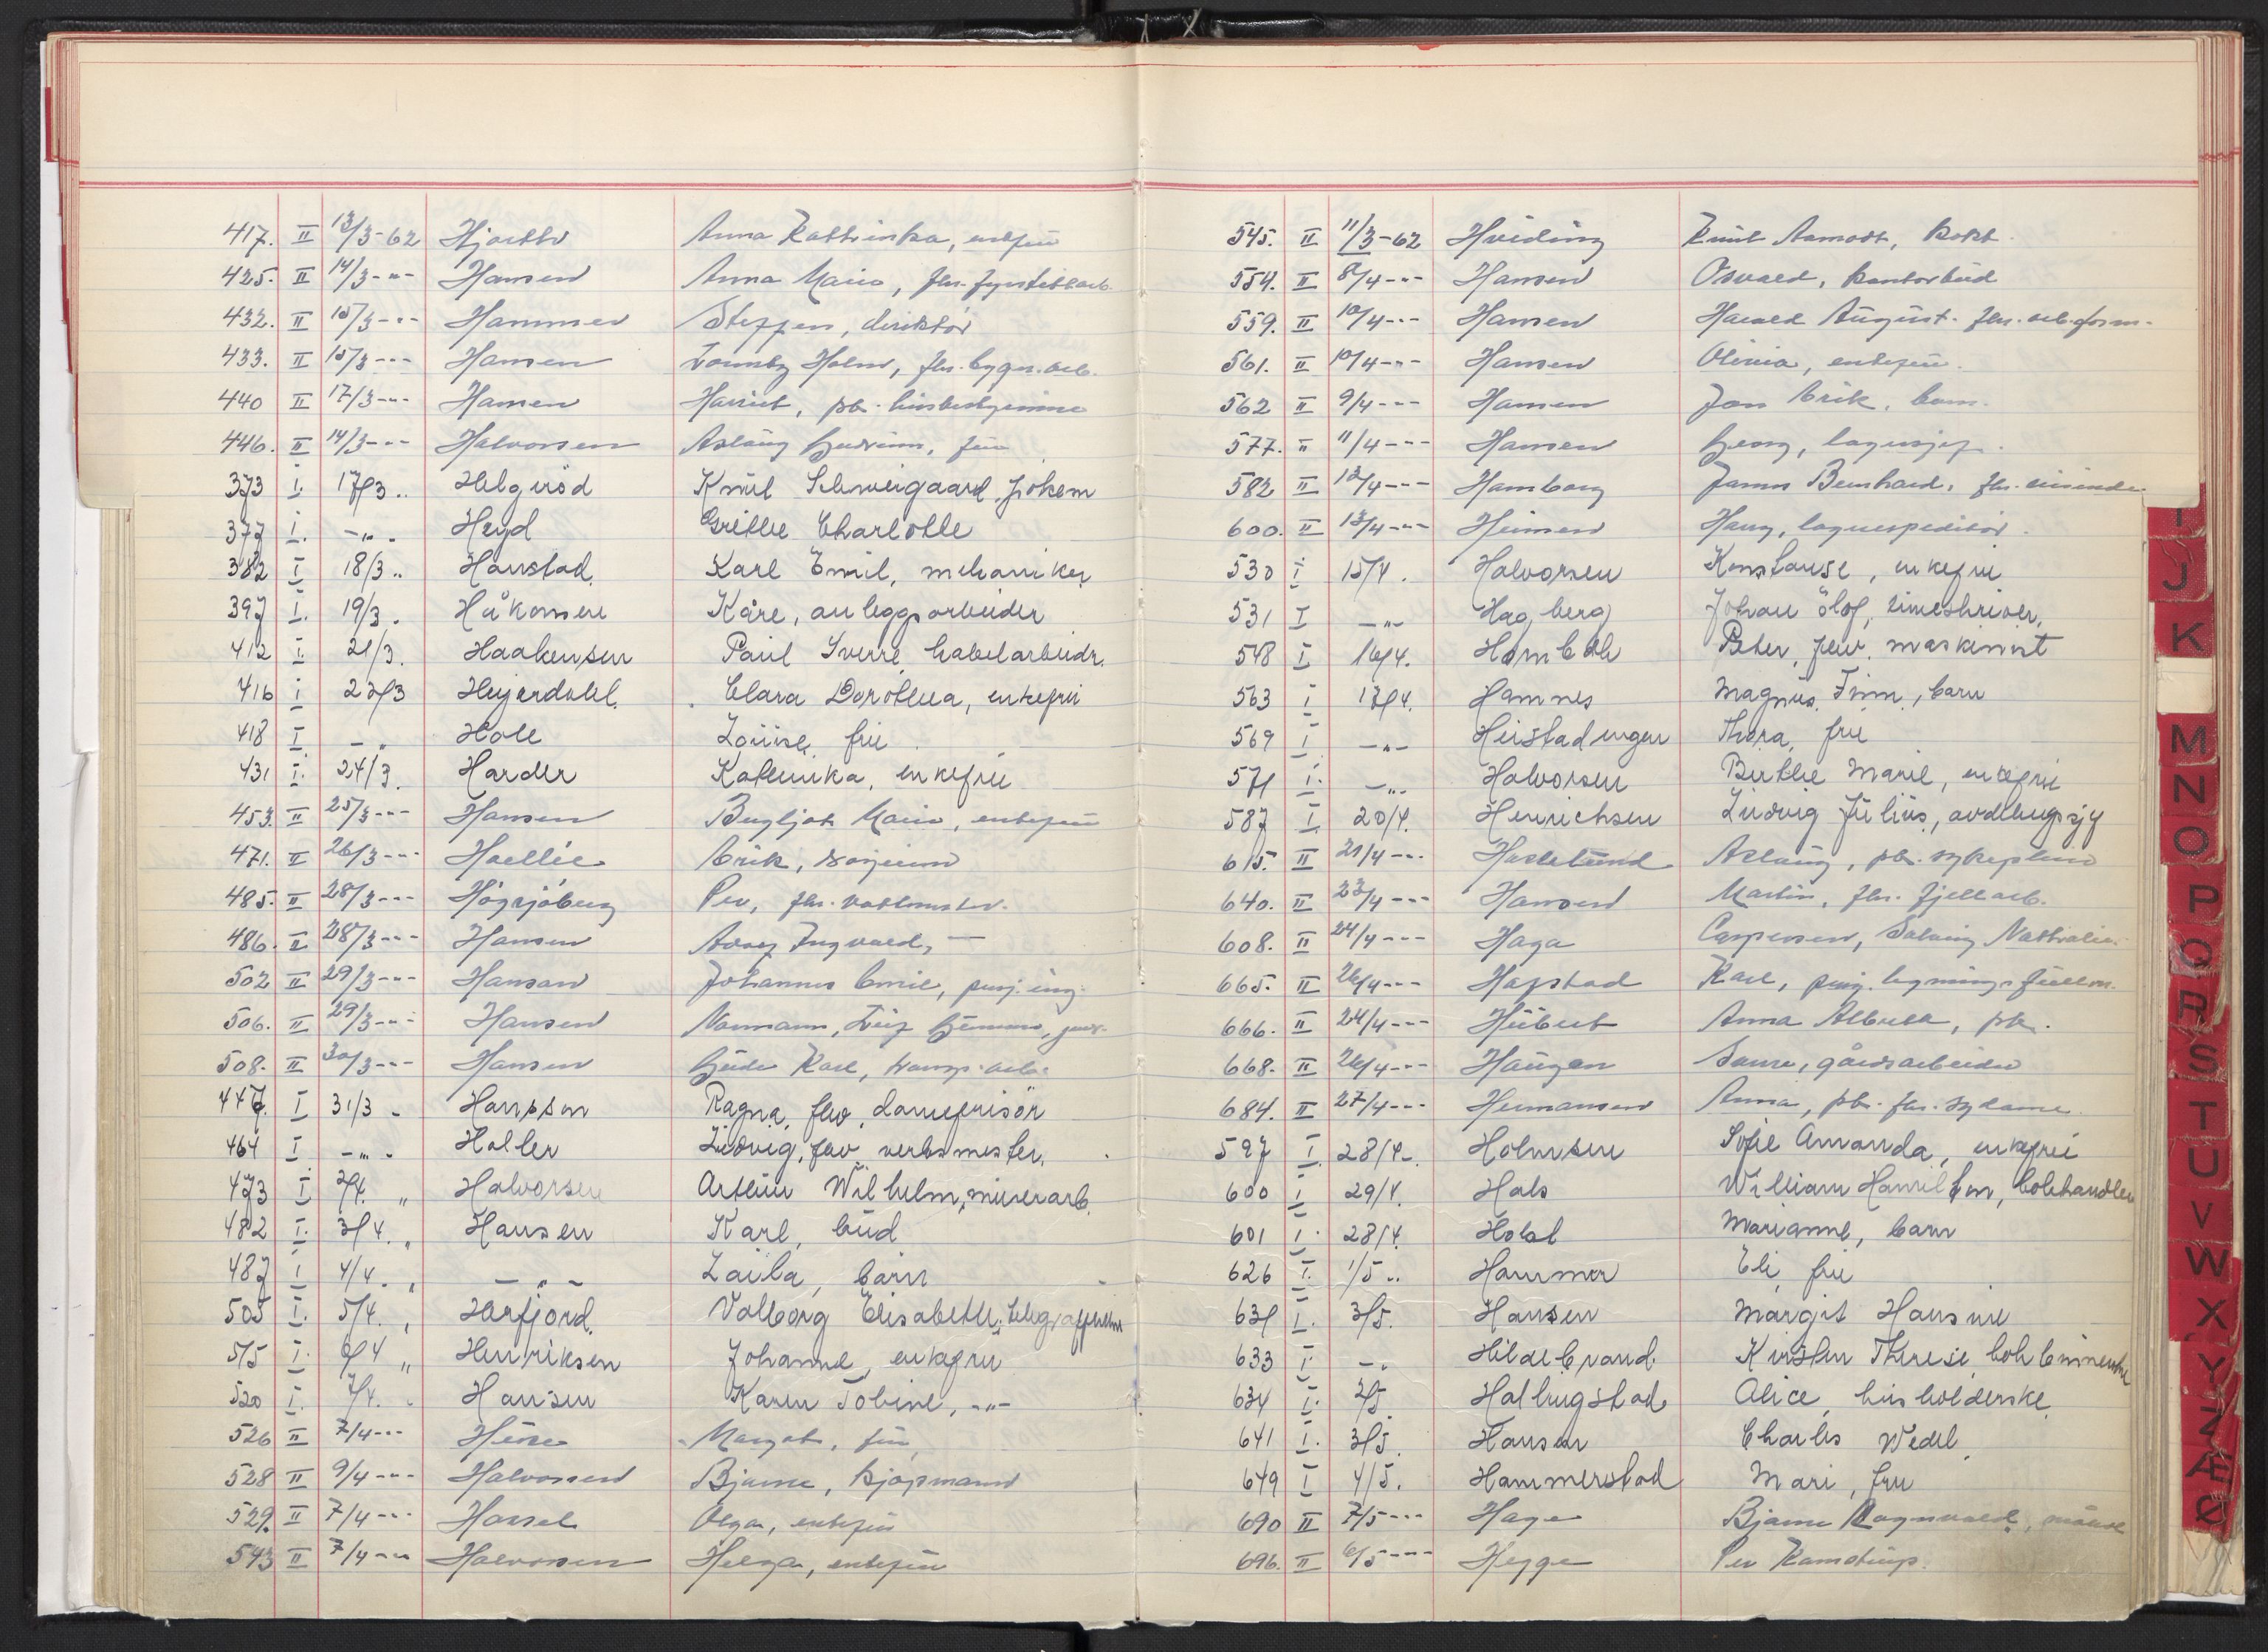 417. II 13/3-62 Hjorth Anna Kathinka, enkefru
425. II 14/3-"- Hansen Anna Marie, fhv. fyrstikkarb.
432. II 15/3-"- Hammer Steffen, direktör
433. II 15/3-"- Hansen Holm, fhv. bygn. arb.
440 II 17/3-"- Hansen Harriet, pb. husbestyrerinne
446. II 14/3-"- Halvorsen Aslaug Gudrun, fru
373 I. 17/3 .. Helgerød Knut Schweigaard, frøkem
377 I. -"- Heyd Grethe Charlotte
382 I 18/3 .. Hanstad Karl Emil, mekaniker
397 I. 19/3 . Håkonsen Kåre, anleggsarbeider
412 I. 21/3. Haakensen Paul Sverre, kabelarbeidr.
416 I 22/3 Heyerdahl Clara Dorothea, enkefru
418 I. -"- Hole Louise, fru
431 I. 24/3. Harder Katinka, enkefru
453. II 25/3-"- Hansen Bergljot Marie, enkefru
471. II 26/3-"- Hoellie Erik,
485. II 28/3-"- Per, fhv. vaktmester
486. II 28/3-"- Hansen Ingvald, —
502 II 29/3-"- Hansen Johannes Emil, pensj. ing.
506. II 29/3-"- Hansen Normann, Leif
508. II 30/3-"- Hansen Karl, transp. arb.
447. I 31/3 - Hansson Ragna, fhv. damefrisör
464 I -"- Holler Ludvig, fhv. verksmester.
473 I 2/4. " Halvorsen Arthur Wilhelm, murerarb.
482 I. 3/4. " Hansen Karl, bud
487 I 4/4. " -"- Laila, barn
505 I. 5/4. " Herfjord Valborg Elisabeth, telegrafistinne
515 I. 6/4 " Henriksen Johanne, enkefru
520 I. 7/4. " Hansen Karen Tobine, -"-
526 II 7/4-"- Margot, fru
528 II 9/4-"- Halvorsen Bjarne, kjöpmann
529. II 7/4-"- Hassel Olga, enkefru
543 II 7/4-"- Halvorsen Helga, enkefru
545. II 11/3-62 Hviding Knut Aamodt, kokk.
554. II 8/4-"- Hansen Osvald, kontorbud
559. II 10/4-"- Hansen Harald August. fhv. arb. form.
561. II 10/4-"- Hansen Olivia, enkefru.
562 II 9/4-"- Hansen Jan Erik, barn.
577. II 11/4-"- Hansen Georg, lagersjef.
582 II 12/4-"- Hamborg James Bernhard, fhv.
600. II 13/4-"- Heimen Harry, lagerekspeditör.
530 I 15/4. Halvorsen Konstanse, enkefru
531 I -"- Hagberg Johan Olof, timeskriver.
548 I 16/4. Peter, fhv. maskinist
563 I 17/4. Hamnes Magnus Finn, barn
569 I -"- Heistadengen Thora, fru
571 I. -"- Halvorsen Berthe Marie, enkefru
587 I. 20/4. Henrichsen Ludvig Julius, avdelingssjef
615. II 21/4-"- Haslelund Aslaug, pb. sykepleier
640. II 23/4-"- Hansen Martin, fhv. fjellarb.
608. II 24/4-"- Haga Caspersen, Solveig Nathalie.
665. II 26/4-"- Hafstad Karl, pensj. bygningsfullm.
666. II 24/4-"- Hübert Anna Alberta, pb.
668. II 26/4-"- Haugen gårdsarbeider
684. II 27/4-"- Hermansen Anna, pb. fhv. sydame.
597 I. 28/4- Holmsen Sofie Amanda, enkefru
600 I 29/4. Hals William Hamilton, bokhandler
601 I. 28/4. Holst Marianne, barn
626 I. 1/5 .. Hammer Eli, fru
631 I. 3/5. Hansen Margit Hansine
633 I. -"- Hildebrand Kirsten Therese, bokbinnerske
634 I. 2/5 Hallingstad Alice, husholderske
641 I. 3/5. Hansen Charles Wedel
649 I 4/5. Hammerstad Mari, fru
690 II 7/5-"- Hage Bjarne Ragnvald,
696. II 6/5-"- Hegge Per Kamstrup.
J
K
M
N
O
P
Q
R
S
T
U
V
W
X
Y
Z
Æ
Ø